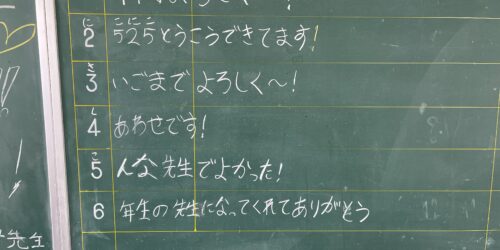 に こにこ
2 525とうこうできてます!
さ
3 いごまでよろしく〜!
し
4 あわせです!
こ
5 んな先生でよかった!
6 年生の先生になってくれてありがとう
先生